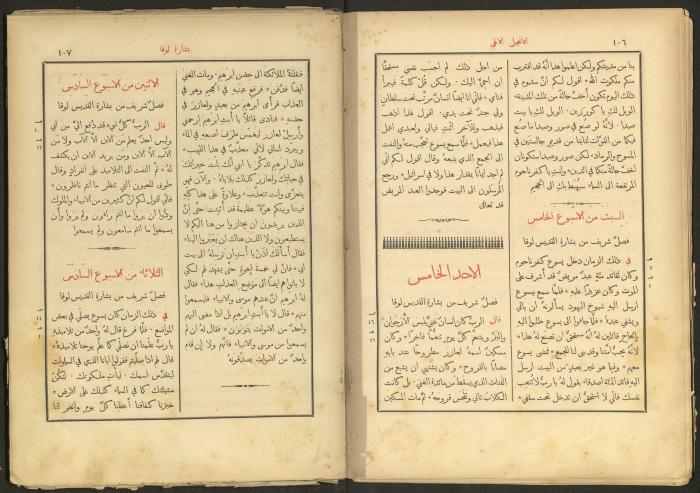 ١٠٦
الانجيل الالهي
بنا من مدينتكم ولكن اعلموا هذا أنه قد اقترب
منكم ملكوت الله* اقول لكم ان سدوم في
ذلك اليوم تكون أخف حالة من تلك المدينة*
الويل لكِ يا كورزين. الويل لكِ يا بيت
صيدا. لأنه لو صُنع في صور وصيدا ما صُنع
فيكما من القوات لتابتا من قديم جالستين في
المسوح والرماد* لكن صور وصيدا ستكونان
أخف حالة منكما في الدين* وانتِ يا كفرناحوم
المرتفعة الى السماء سيُهبط بكِ الى الجحيم
السبت من الاسبوع الخامس
فصل شريف من بشارة القديس لوقا
في ذلك الزمان دخل يسوع كفرناحوم
وكان لقائد مئة عبد مريض قد أشرف على
الموت وكان عزيزًا عليه* فلما سمع بيسوع
ارسل اليه شيوخ اليهود يسألونه ان ياتي
ويشفي عبده* فلما جاءوا الى يسوع طلبوا اليه
بإلحاح قائلين له أنه مستحق ان تصنع له هذا*
لأنه يحب أمتنا وقد بنى لنا المجمع* فمضى يسوع
معهم* وفيما هو غير بعيد من البيت ارسل
اليه قائد المئة اصدقاء يقول له يا رب لا تتعب
نفسك فاني لا استحق ان تدخل تحت سقفي*
من اجل ذلك لم احسب نفسي مستحقًا
ان اجيء اليك. ولكن قُل كلمة فيبرأ
فتاي* فاني انا ايضًا انسان مرتب تحت سلطان
ولي جند تحت يدي. اقول لهذا اذهب
فيذهب وللآخر ائت فياتي ولعبدي اعمل
هذا فيعمل* فلما سمع يسوع تعجب منه والتفت
الى الجمع الذي يتبعه وقال اقول لكم اني
لم اجد ايمانًا بمقدار هذا ولا في اسرائيل* ورجع
المرسلون الى البيت فوجدوا العبد المريض
قد تعافى
الاحد الخامس
فصل شريف من بشارة القديس لوقا
قال الرب كان انسان غني يلبس الأرجوان
والبز ويتنعم كل يوم تنعمًا فاخرًا* وكان
مسكين اسمه لعازر مطروحًا عند بابه
مصابًا بالقروح* وكان يشتهي ان يشبع من
الفتات الذي يسقط من مائدة الغني. بل كانت
الكلاب تاتي وتلحس قروحه* ثم مات المسكين
بشارة لوقا
١٠٧
فنقلته الملائكة الى حضن ابرهيم. ومات الغني
ايضًا فدُفن* فرفع عينيه في الجحيم وهو في
العذاب فرأى ابرهيم من بعيد ولعازر في
حضنه* فنادى قائلًا يا أبتِ ابرهيم ارحمني
وأرسل لعازر ليغمس طرف اصبعه في الماء
ويبرد لساني لاني معذب في هذا اللهيب*
فقال ابرهيم تذكر يا ابني انك نلت خيراتك
في حياتك ولعازر كذلك بلاياه. والآن فهو
يتعزى وانت تتعذب* وعلاوة على هذا كله
فبيننا وبينكم هوة عظيمة قد أُثبتت حتى ان
الذين يريدون ان يجتازوا من هنا اليكم لا
يستطيعون ولا الذين هناك ان يعبروا الينا*
فقال أسألك اذن يا أبتِ ان ترسله الى بيت
ابي* فان لي خمسة إخوة حتى يشهد لهم لكي
لا يأتوا هم ايضًا الى موضع العذاب هذا* فقال
له ابرهيم ان عندهم موسى والانبياء فليسمعوا
منهم* قال لا يا أبتِ ابرهيم بل اذا مضى اليهم
واحد من الاموات يتوبون* فقال له ان لم
يسمعوا من موسى والانبياء فانهم ولا إن قام
واحد من الاموات يصدقونه
الاثنين من الاسبوع السادس
فصل شريف من بشارة القديس لوقا
قال الرب كل شيء قد دُفع اليّ من ابي
وليس احد يعلم من الابن الا الآب ولا من
الآب الا الابن ومن يريد الابن ان يكشف
له* ثم التفت الى التلاميذ على انفراد وقال
طوبى للعيون التي تنظر ما انتم ناظرون*
فاني اقول لكم ان كثيرين من الانبياء والملوك
ودوا ان يروا ما انتم راءون ولم يروا وان
يسمعوا ما انتم سامعون ولم يسمعوا
الثلاثاء من الاسبوع السادس
فصل شريف من بشارة القديس لوقا
في ذلك الزمان كان يسوع يصلي في بعض
المواضع. فلما فرغ قال له واحد من تلاميذه
يا رب علّمنا ان نصلي كما علّم يوحنا تلاميذه*
قال لهم اذا صليتم فقولوا ابانا الذي في السماوات
ليتقدس اسمك. ليأتِ ملكوتك. لتكن
مشيئتك كما في السماء كذلك على الارض*
خبزنا كفافنا أعطنا كل يوم واغفر لنا